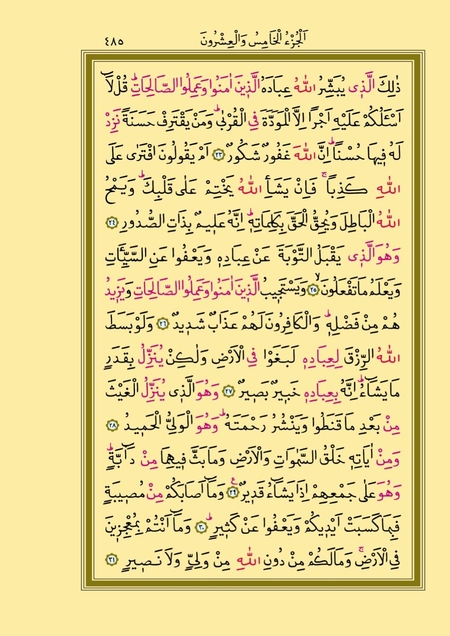 اَلْجُزْءُ الْخَامِسُ وَالْعِشْرُونَ ٤٨٥
ذٰلِكَ الَّذٖى يُبَشِّرُ اللّٰهُ عِبَادَهُ الَّذٖينَ اٰمَنُوا وَعَمِلُوا الصَّالِحَاتِؕ قُلْ لَٓا
اَسْـَٔلُكُمْ عَلَيْهِ اَجْرًا اِلَّا الْمَوَدَّةَ فِى الْقُرْبٰىؕ وَمَنْ يَقْتَرِفْ حَسَنَةً نَزِدْ
لَهُ فٖيهَا حُسْنًاؕ اِنَّ اللّٰهَ غَفُورٌ شَكُورٌ ﴿٢٣﴾ اَمْ يَقُولُونَ افْتَرٰى عَلَى
اللّٰهِ كَذِبًاۚ فَاِنْ يَشَأِ اللّٰهُ يَخْتِمْ عَلٰى قَلْبِكَؕ وَيَمْحُ
اللّٰهُ الْبَاطِلَ وَيُحِقُّ الْحَقَّ بِكَلِمَاتِهٖؕ اِنَّهُ عَلٖيمٌ بِذَاتِ الصُّدُورِ ﴿٢٤﴾
وَهُوَ الَّذٖى يَقْبَلُ التَّوْبَةَ عَنْ عِبَادِهٖ وَيَعْفُوا عَنِ السَّيِّـَٔاتِ
وَيَعْلَمُ مَا تَفْعَلُونَۙ ﴿٢٥﴾ وَيَسْتَجٖيبُ الَّذٖينَ اٰمَنُوا وَعَمِلُوا الصَّالِحَاتِ وَيَزٖيدُ
هُمْ مِنْ فَضْلِهٖؕ وَالْكَافِرُونَ لَهُمْ عَذَابٌ شَدٖيدٌ ﴿٢٦﴾ وَلَوْ بَسَطَ
اللّٰهُ الرِّزْقَ لِعِبَادِهٖ لَبَغَوْا فِى الْاَرْضِ وَلٰكِنْ يُنَزِّلُ بِقَدَرٍ
مَا يَشَٓاءُؕ اِنَّهُ بِعِبَادِهٖ خَبٖيرٌ بَصٖيرٌ ﴿٢٧﴾ وَهُوَ الَّذٖى يُنَزِّلُ الْغَيْثَ
مِنْ بَعْدِ مَا قَنَطُوا وَيَنْشُرُ رَحْمَتَهُؕ وَهُوَ الْوَلِىُّ الْحَمٖيدُ ﴿٢٨﴾
وَمِنْ اٰيَاتِهٖ خَلْقُ السَّمٰوَاتِ وَالْاَرْضِ وَمَا بَثَّ فٖيهِمَا مِنْ دَٓابَّةٍؕ
وَهُوَ عَلٰى جَمْعِهِمْ اِذَا يَشَٓاءُ قَدٖيرٌ ﴿٢٩﴾ وَمَٓا اَصَابَكُمْ مِنْ مُصٖيبَةٍ
فَبِمَا كَسَبَتْ اَيْدٖيكُمْ وَيَعْفُوا عَنْ كَثٖيرٍؕ ﴿٣٠﴾ وَمَٓا اَنْتُمْ بِمُعْجِزٖينَ
فِى الْاَرْضِۚ وَمَا لَكُمْ مِنْ دُونِ اللّٰهِ مِنْ وَلِىٍّ وَلَا نَصٖيرٍ ﴿٣١﴾